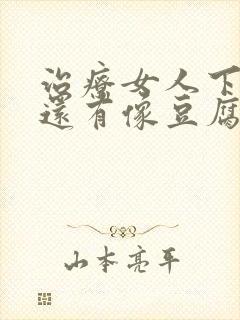 治療女人下
還有像豆腐
山本亮平